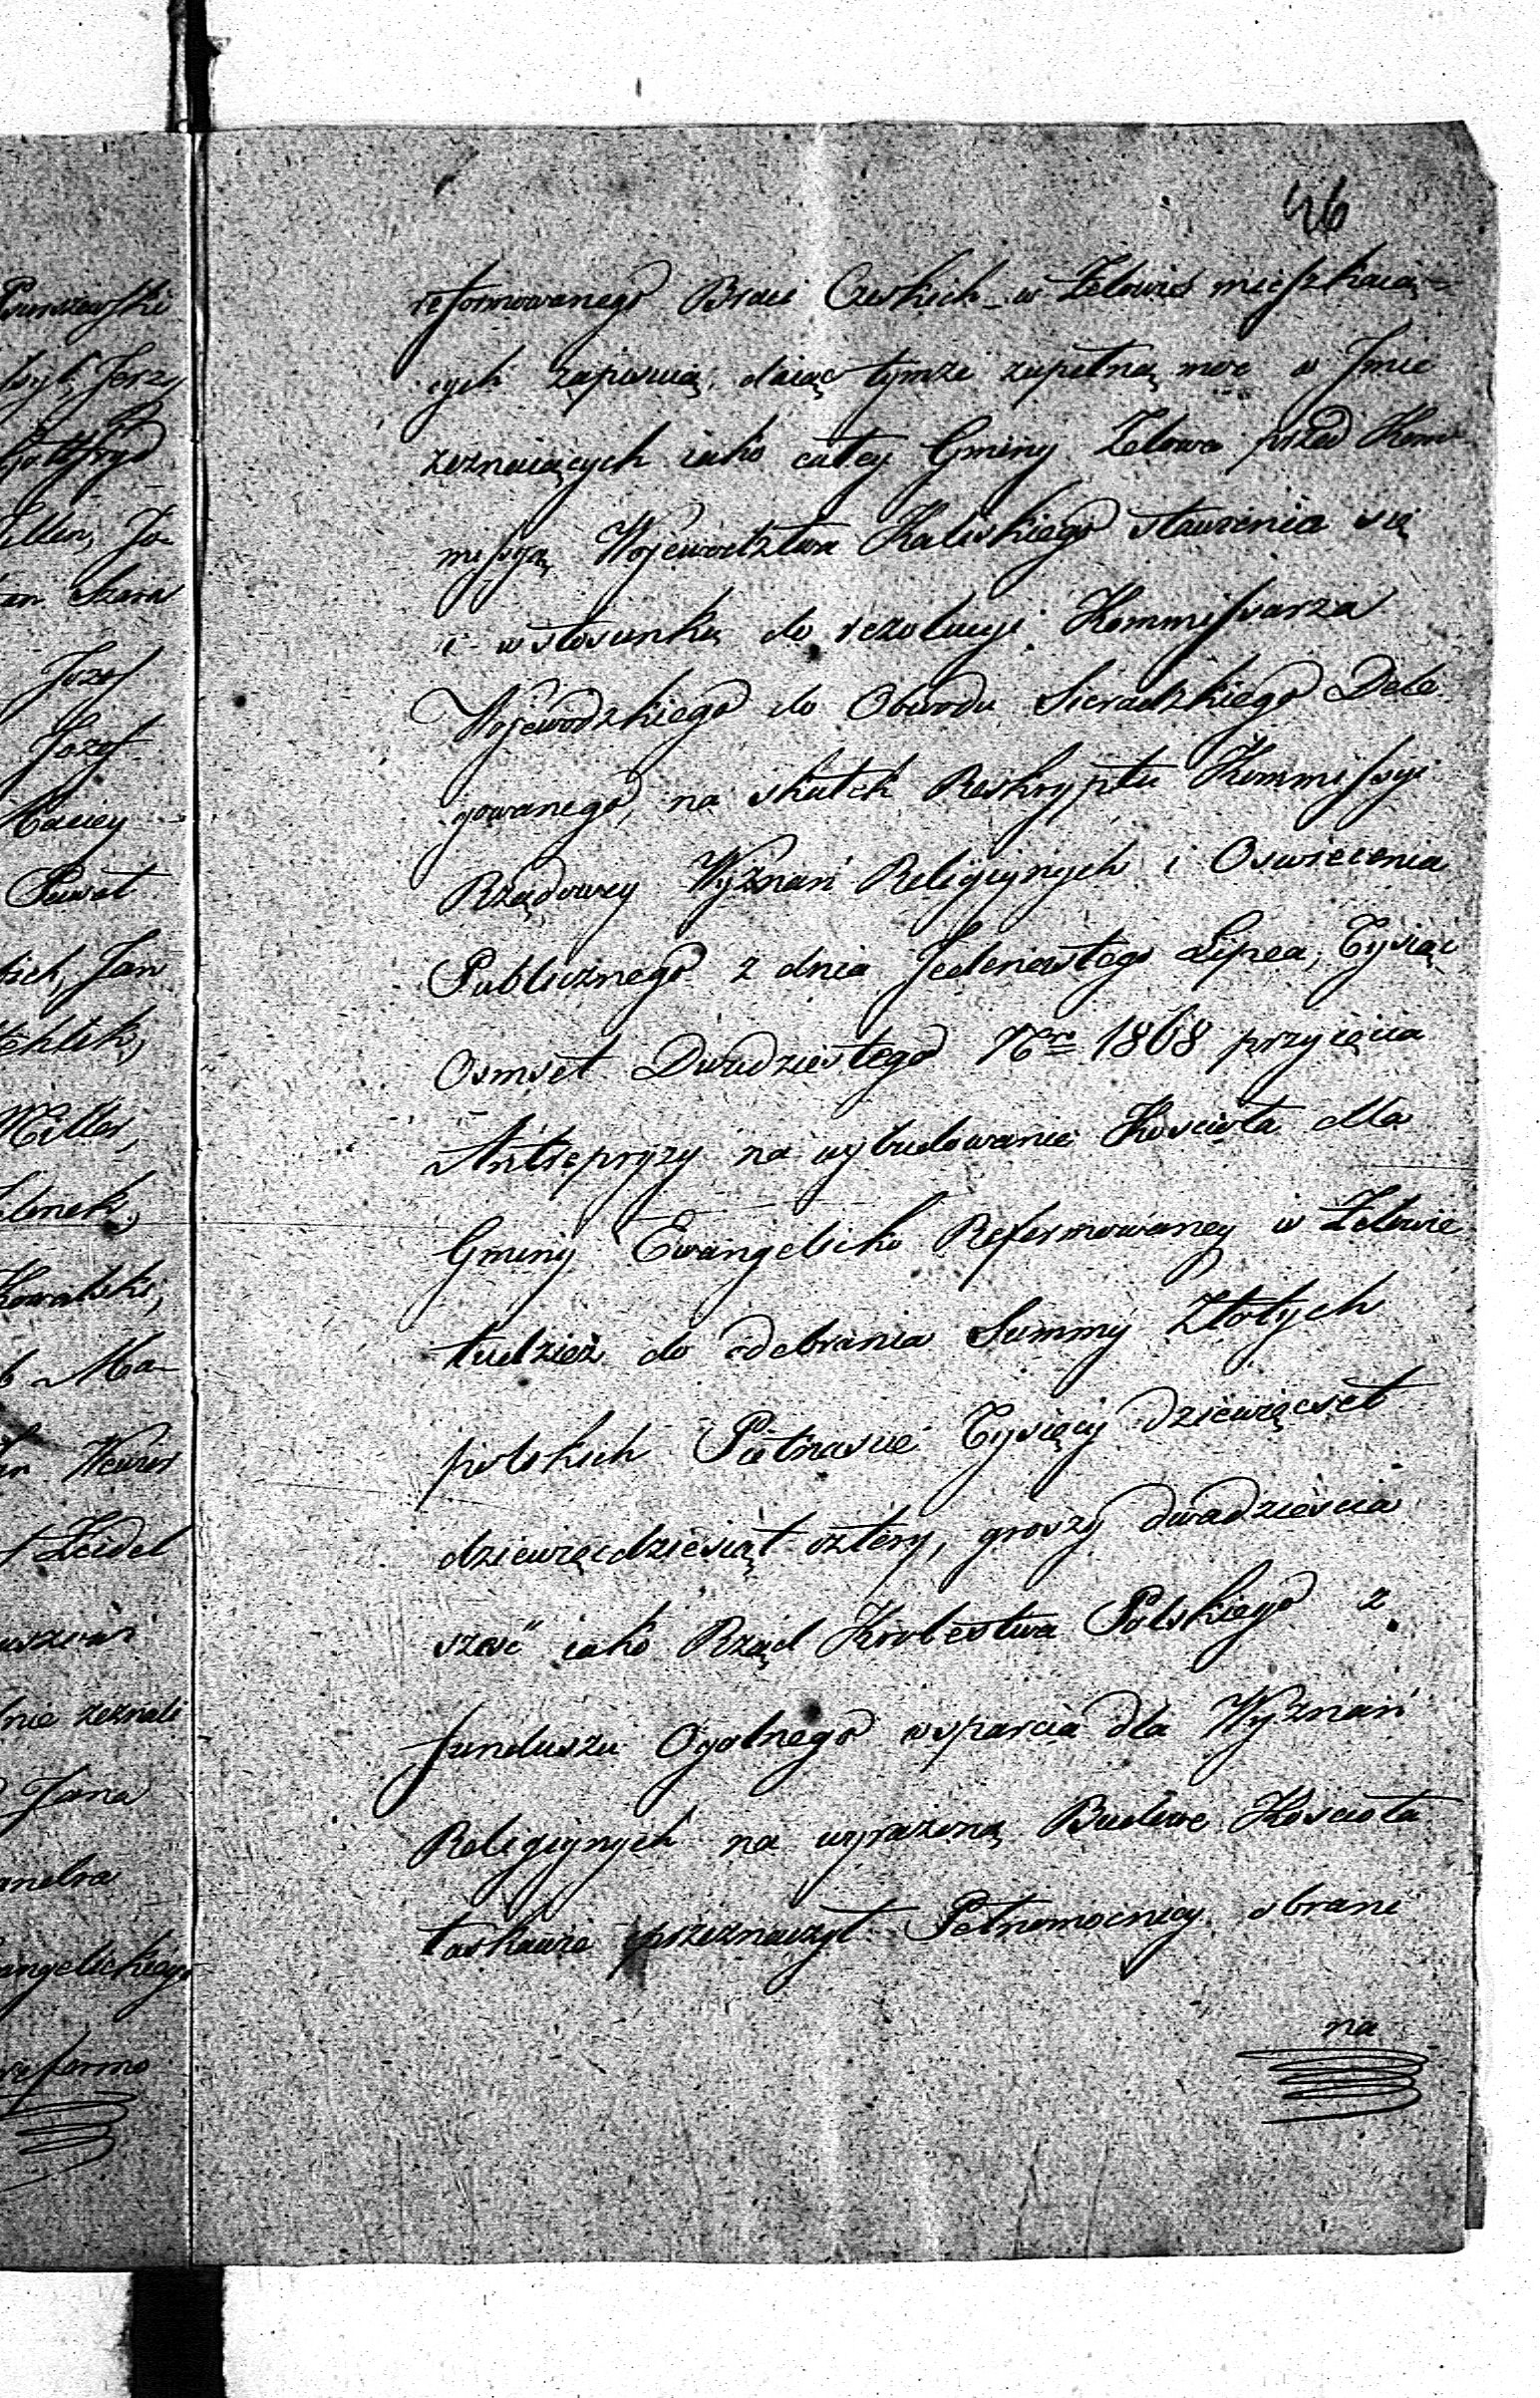 46
reformowanego Braci Czeskich w Zelowie mieszkaią-
cych zapisuią, daiąc tymże zupełną moc w Jmie
zeznaiących iako całey Gminy Zelowa przed Kom-
missyą Woiewodztwa Kaliskiego stawienia się
i w stosunku do rezolucyi Kommissarza
Woiewodzkiego do Obwodu Sieradzkiego Dele
gowanego, na skutek Reskryptu Kommissyi
Rządowey Wyznań Religiynych i Oswiecenia
Publicznego z dnia Jedenastego Lipca, Tysiąc
Osmset Dwudziestego Nro 1868 przyięcia
Antrepryzy na wybudowanie Kościoła dla
Gminy Ewangelicko Reformowaney w Zelowie
tudzież do odebrania Summy Złotych
polskich Pietnascie Tysięcy dziewięcset
dziewięcdziesiąt cztery, groszy dwadziescia
szesć iako Rząd Krolestwa Polskiego z
funduszu Ogolnego wsparcia dla Wyznań
Religiynych na wyrażoną Budowę Koscioła
łaskawie przeznaczył Pełnomocnicy obrani
na
Jerzy
Jozef
Jozef
Maciey
Paweł
Jan
Miller,
Kowalski,
Ma-
Zeidel
nie zeznali
Jana
reformo